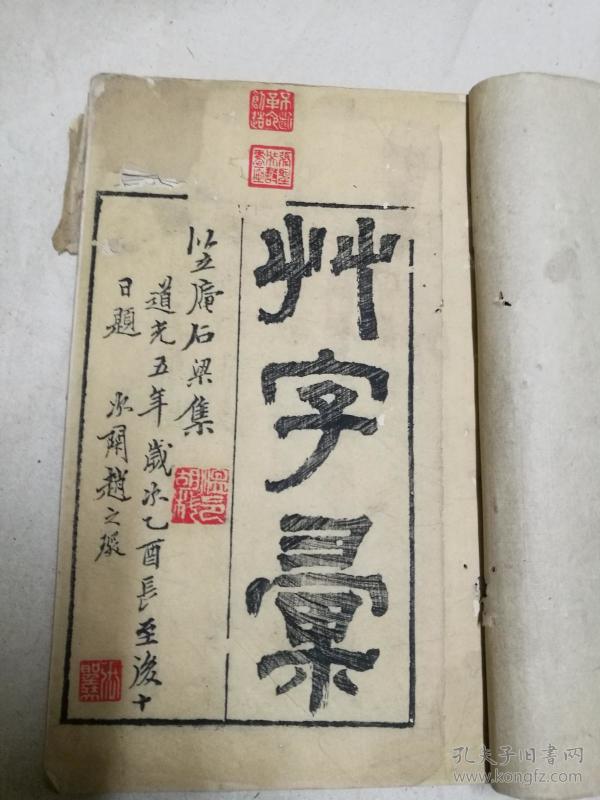 艸字彙
竺庵石梁集
道光五年歲次乙酉長至後十
日題
趙之
孔夫子旧书网
www.kongfz.com